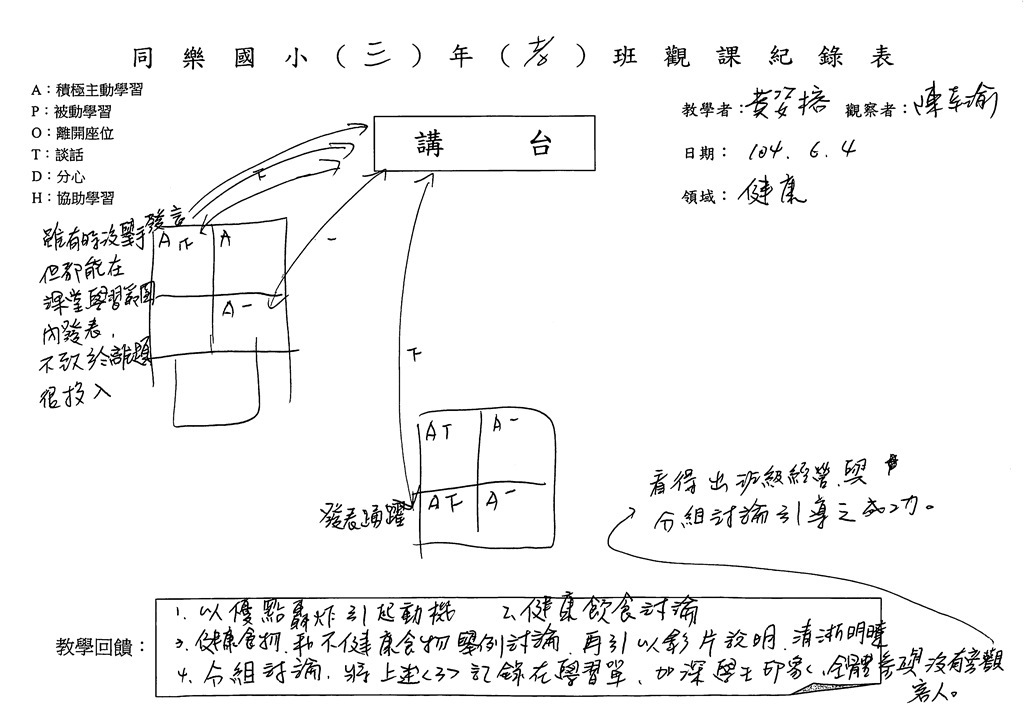 同樂國小（三）年（孝）班觀課紀錄表
A：積極主動學習
P：被動學習
O：離開座位
T：談話
D：分心
H：協助學習
教學者：黃 觀察者：陳
日期：104.6.4
領域：健康
講 台
雖有時沒舉手發言
但都能在
課堂學習範圍
內發表，
不致於離題
很投入
A 下 A
A 一
下
一
下
A T A 一
A 下 A 一
發表踴躍
看得出班級經營與
分組討論引導之成功。
教學回饋：
1. 以優點轟炸引起動機 2. 健康飲食討論
3. 健康食物和不健康食物舉例討論，再引以影片說明，清淅明瞭
4. 分組討論，將上述<3>記錄在學習單，加深學生印象，全體參與，沒有旁觀
客人。